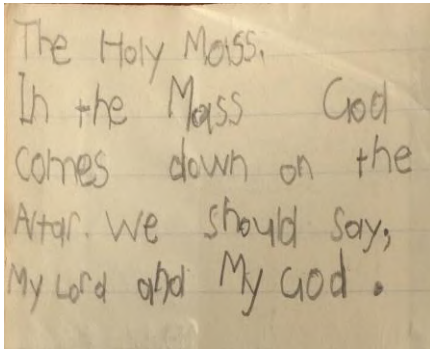 The Holy Mass.
In the Mass God
comes down on the
Altar. We should say,
My Lord and My God.